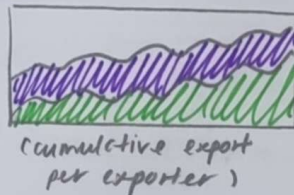 (cumulative export
per exporter)